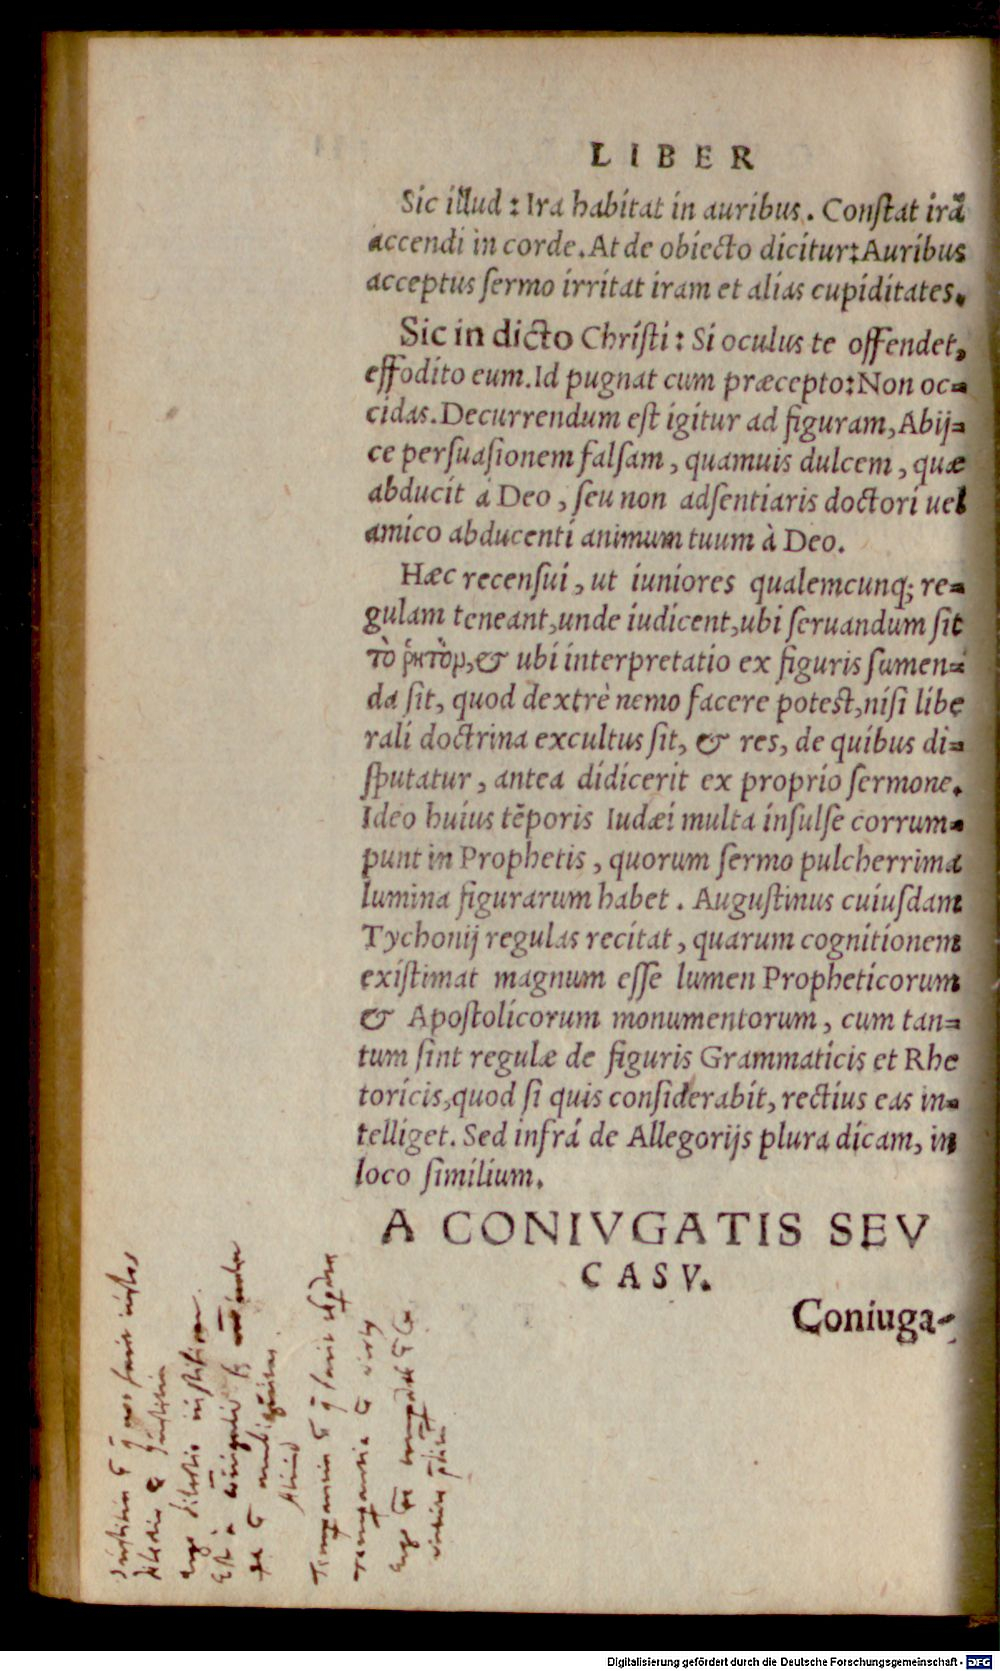 LIBER
Sic illud : Ira habitat in auribus. Constat irã
accendi in corde. At de obiecto dicitur: Auribus
acceptus sermo irritat iram et alias cupiditates.
Sic in dicto Christi : Si oculus te offendet,
effodito eum. Id pugnat cum præcepto: Non oc=
cidas. Decurrendum est igitur ad figuram, Abij=
ce persuasionem falsam, quamuis dulcem, quæ
abducit à Deo, seu non adsentiaris doctori uel
amico abducenti animum tuum à Deo.
Hæc recensui, ut iuniores qualemcunq; re=
gulam teneant, unde iudicent, ubi seruandum sit
τὸ ῥητὸν, & ubi interpretatio ex figuris sumen=
da sit, quod dextrè nemo facere potest, nisi libe
rali doctrina excultus sit, & res, de quibus di=
sputatur, antea didicerit ex proprio sermone.
Ideo huius tẽporis Iudæi multa insulse corrum=
punt in Prophetis, quorum sermo pulcherrima
lumina figurarum habet. Augustinus cuiusdam
Tychonij regulas recitat, quarum cognitionem
existimat magnum esse lumen Propheticorum
& Apostolicorum monumentorum, cum tan=
tum sint regulæ de figuris Grammaticis et Rhe
toricis, quod si quis considerabit, rectius eas in=
telliget. Sed infrá de Allegorijs plura dicam, in
loco similium.
A CONIVGATIS SEV
CASV.
Coniuga=
Digitalisierung gefördert durch die Deutsche Forschungsgemeinschaft - DFG